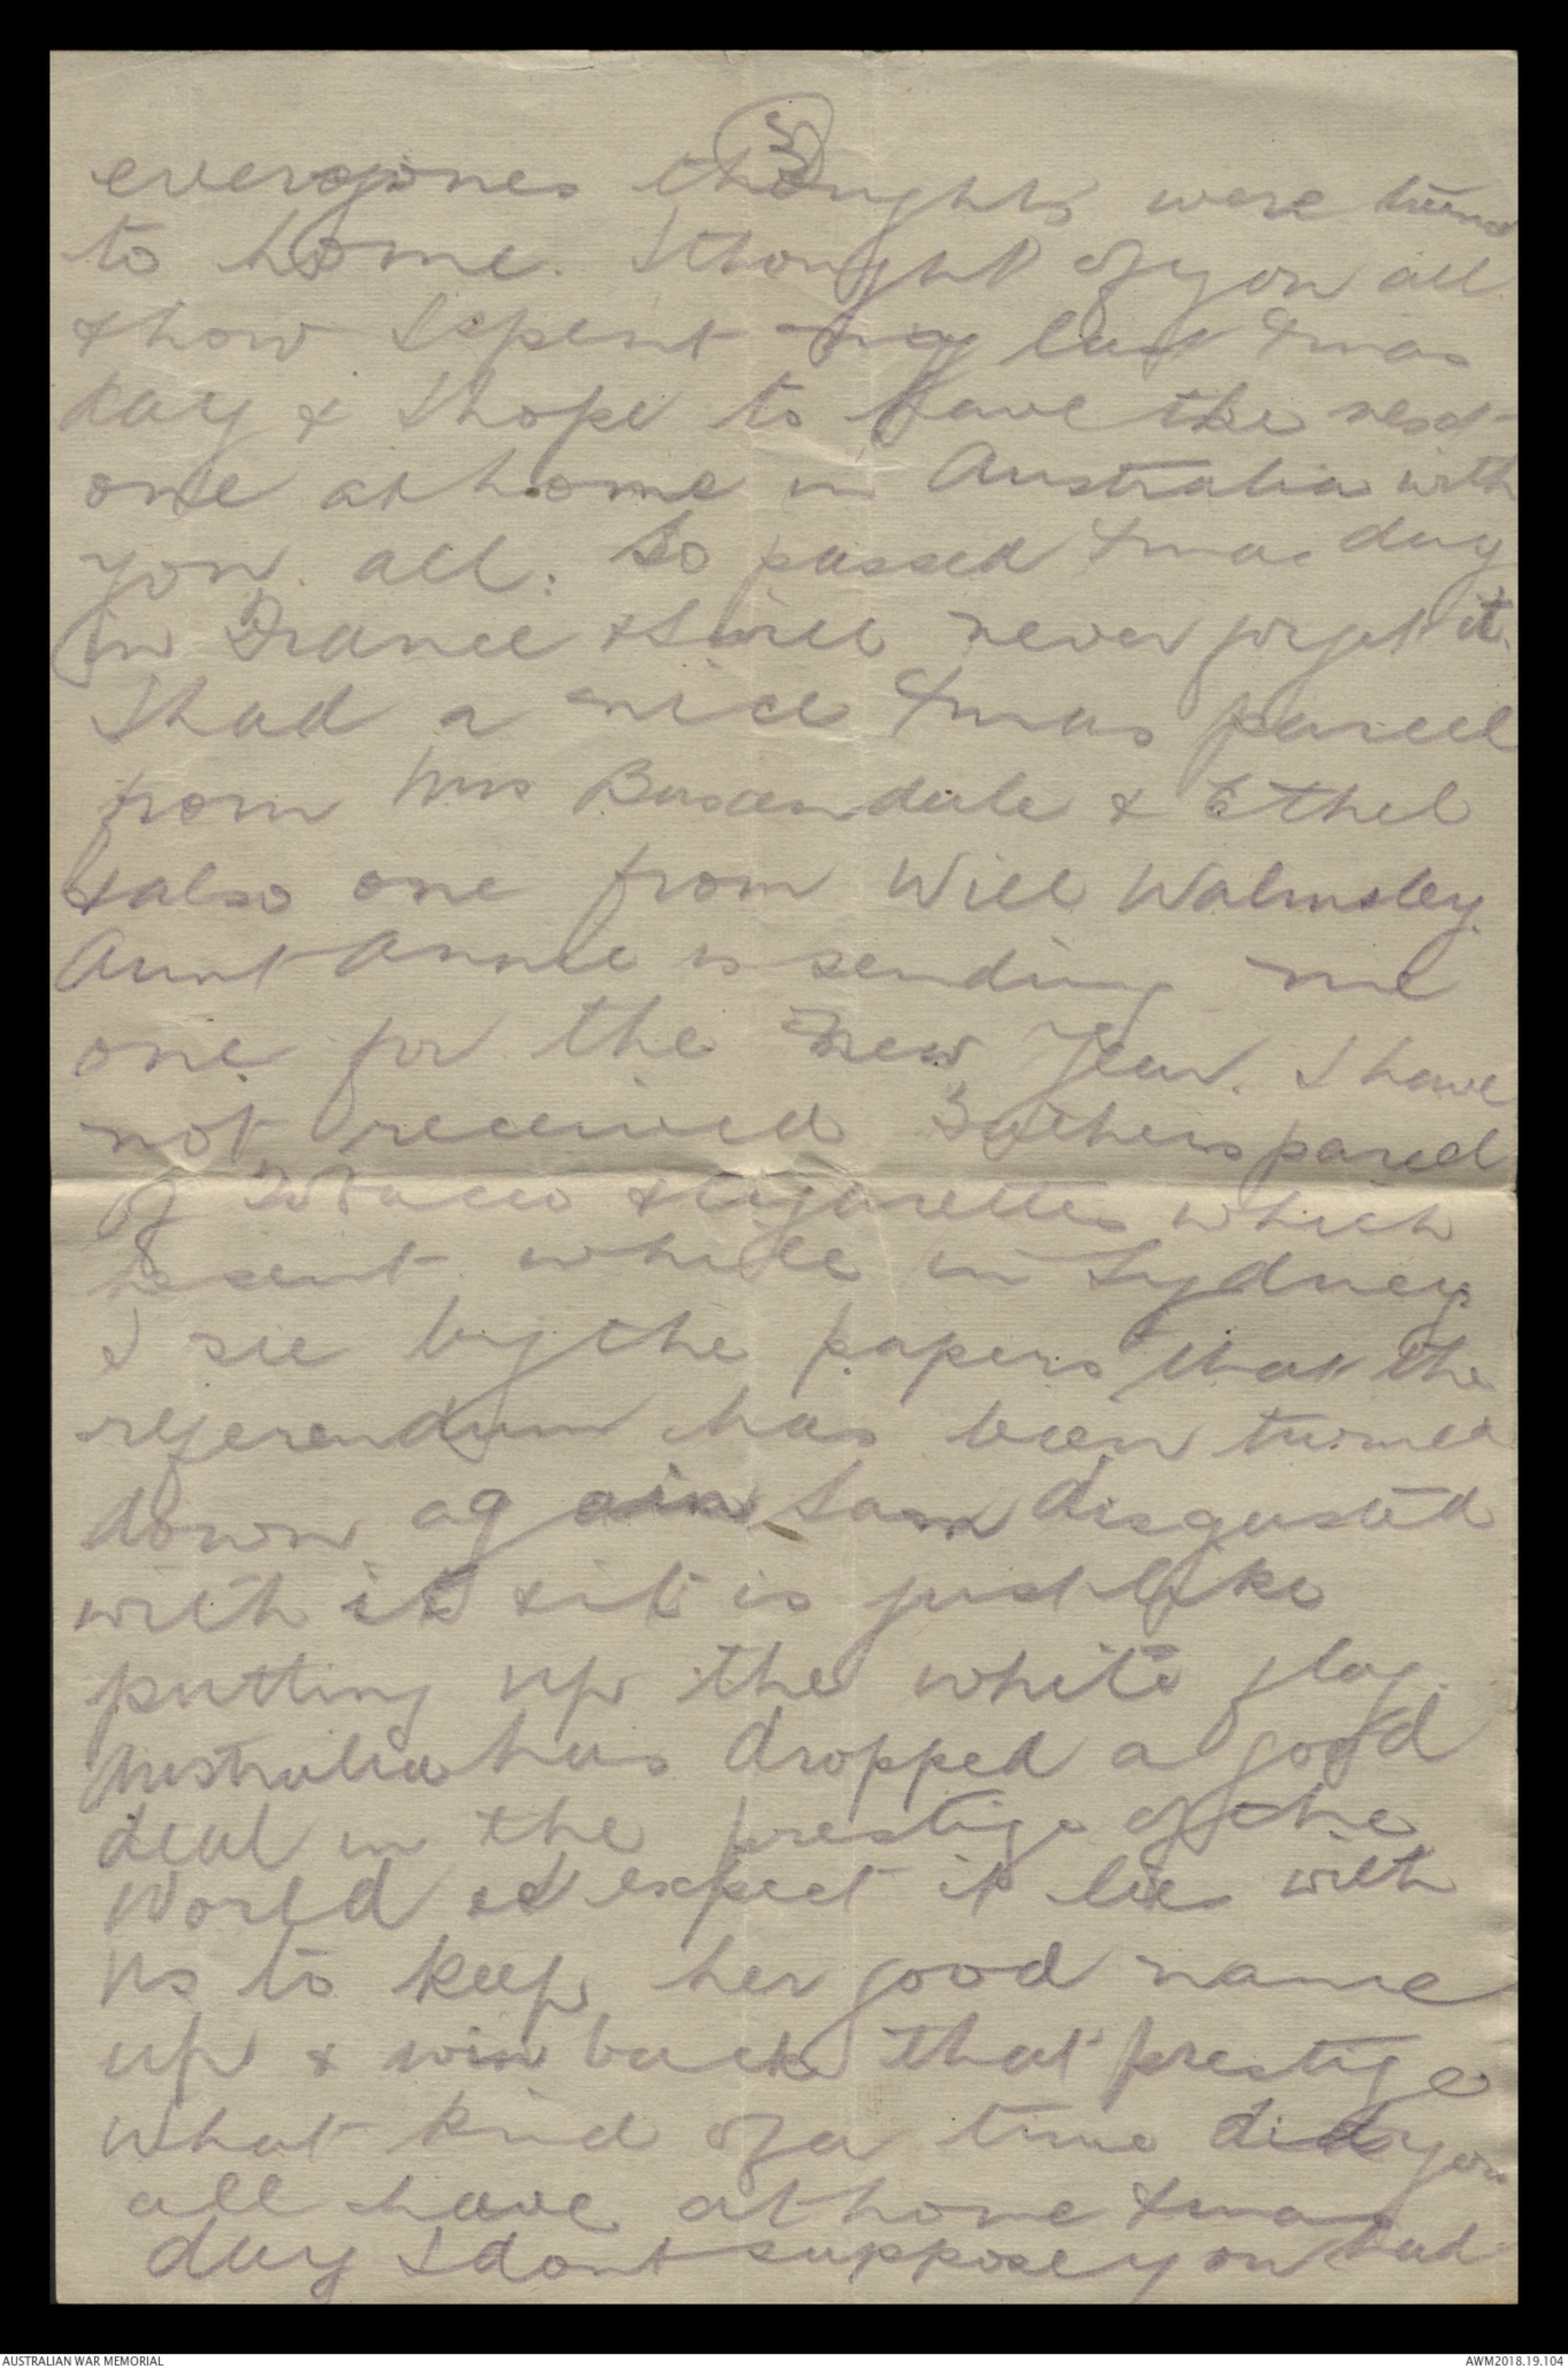 3
everyones thoughts were turned
to home. I thought of you all
& how I spent my last Xmas
day & I hope to have the next
one at home in Australia with
you all. So passed Xmas day
in France & I will never forget it.
I had a nice Xmas parcel
from Mrs Baxendale & Ethel
& also one from Will Walmsley.
Aunt Annie is sending me
one for the New Year. I have
not received parcel
of Tobacco & Cigarettes which
he sent while in Sydney.
I see by the papers that the
referendum has been turned
down again, I am disgusted
with it & it is just like
putting up the white flag.
Australia has dropped a good
deal in the prestige of the
World & I expect it lies with
us to keep her good name
up & win back that prestige
What kind of a time did you
all have at home Xmas
day I dont suppose you had
AUSTRALIAN WAR MEMORIAL
AWM2018.19.104